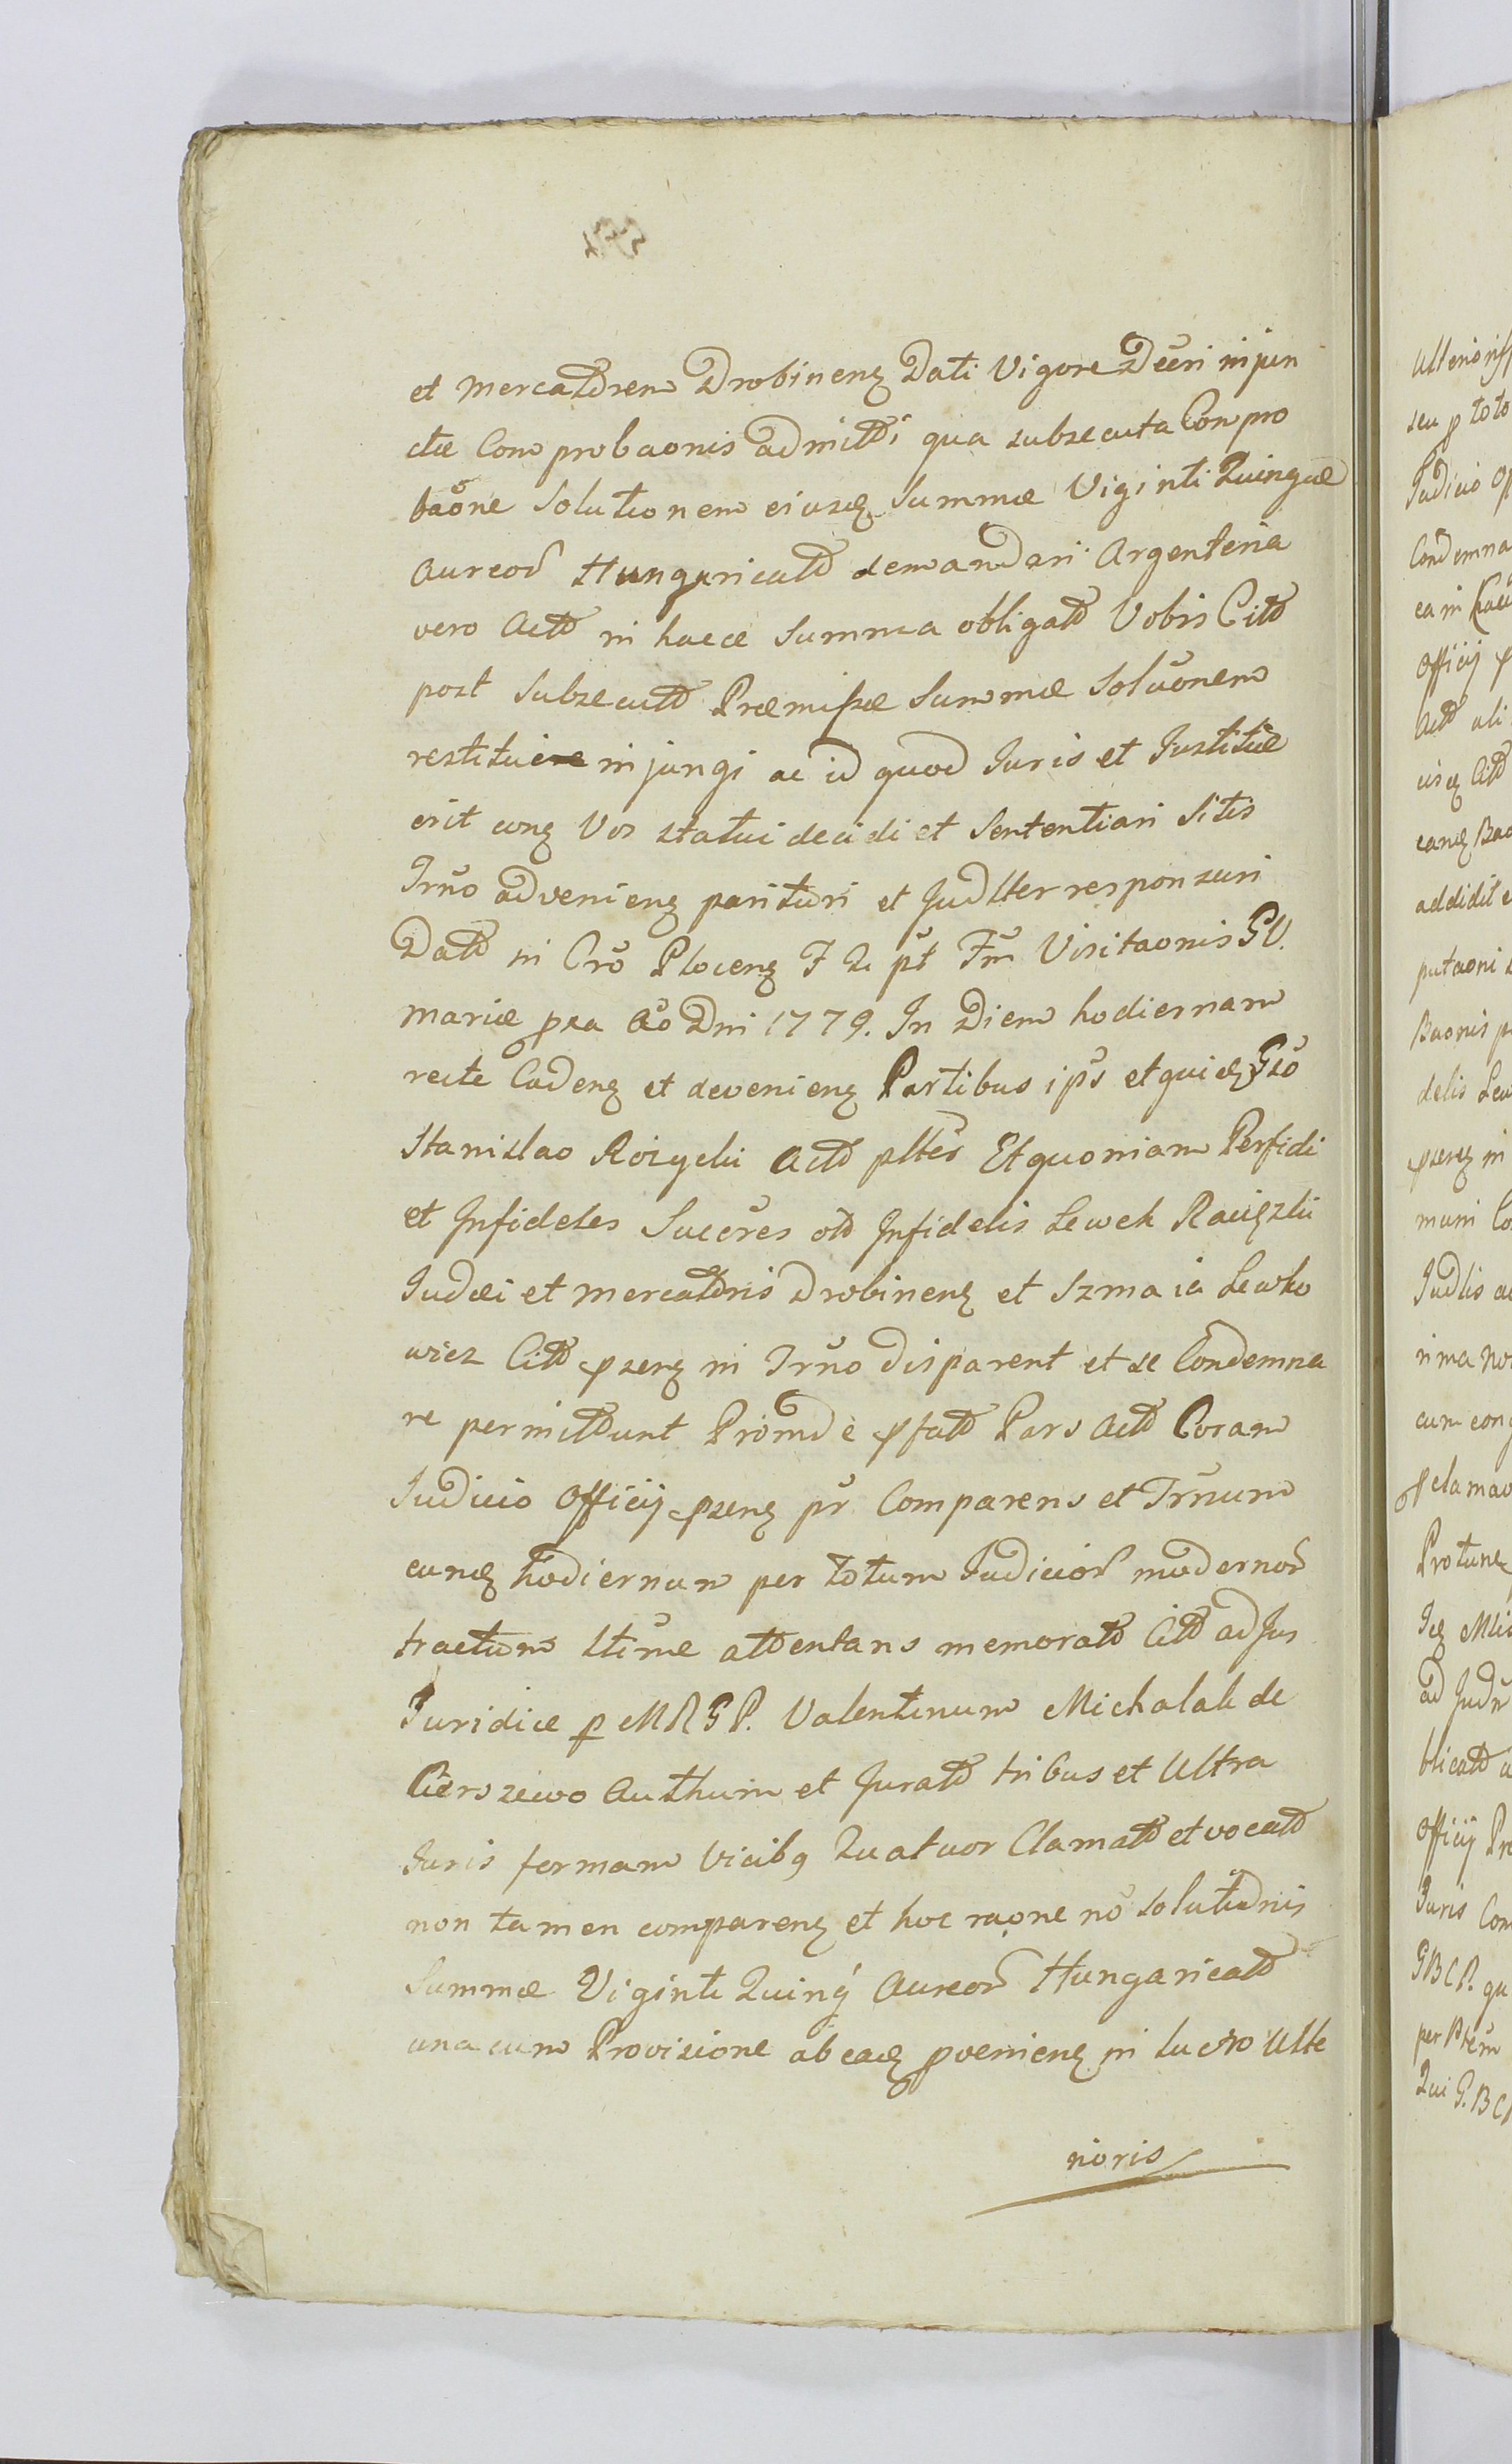 et mercattorem Drobinens Dati Vigore Decri injun
ctæ Comprobaonis admitti qua subsecuta Compro
baone Solutionem eiusdem Summæ Viginti Quinque
Aureor Hungaricatt demandari Argenteria
vero Actt in haece Summa obligatt Vobis Citt
post subsecutt Præmissæ Summæ Soluonem
restituere injungi ac id quod Juris et Justitiæ
erit cong Vos statui decidi et Sententiari Sitis
Trno adveniens parituri et Judtter responsuri
Datt in Cro Plocens F 2 pt Fm Visitaonis BV.
Mariæ pxa Ao Dni 1779. In Diem hodiernam
recte Cadens et deveniens Partibus ips et quidem Gso
Stanislao Rozycki Actt pltes Et quoniam Perfidi
et Infideles Succres ott Infidelis Lewek
Judæi et mercattoris Drobinens et Szmaia Lewko
wicz Citt psens in Trno disparent et se Condemna
re permittunt Proinde pfatt Pars Actt Coram
Judicio Officij psens pr Comparens et Trnum
eundem hodiernum per totum Judicior modernor
tractum Stime attentans memoratt Citt ad Jus
Juridice p MRGP. Valentinum Michalak de
Cierszewo Authum et Juratt tribus et Ultra
Juris formam Vicibq Quatuor Clamatt et vocatt
non tamen comparens et hoc raone no solutionis
Summæ Viginti Quinq Aureor Hungaricatt
una cum Provisione ab eadem proveniens in lucro Ulte
rioris
Ulterioris
seu p toto
Judicio
Condemna
ea in
Officij p
Actt
Citt
eandem
addidit
putaoni
Baonis
delis Lew
psens in
muni
Judlis
cum
pclamao
Protunc
ad Judm
blicatt
Officij
Juris Con
GBCP. qu
per
Qui G.BC